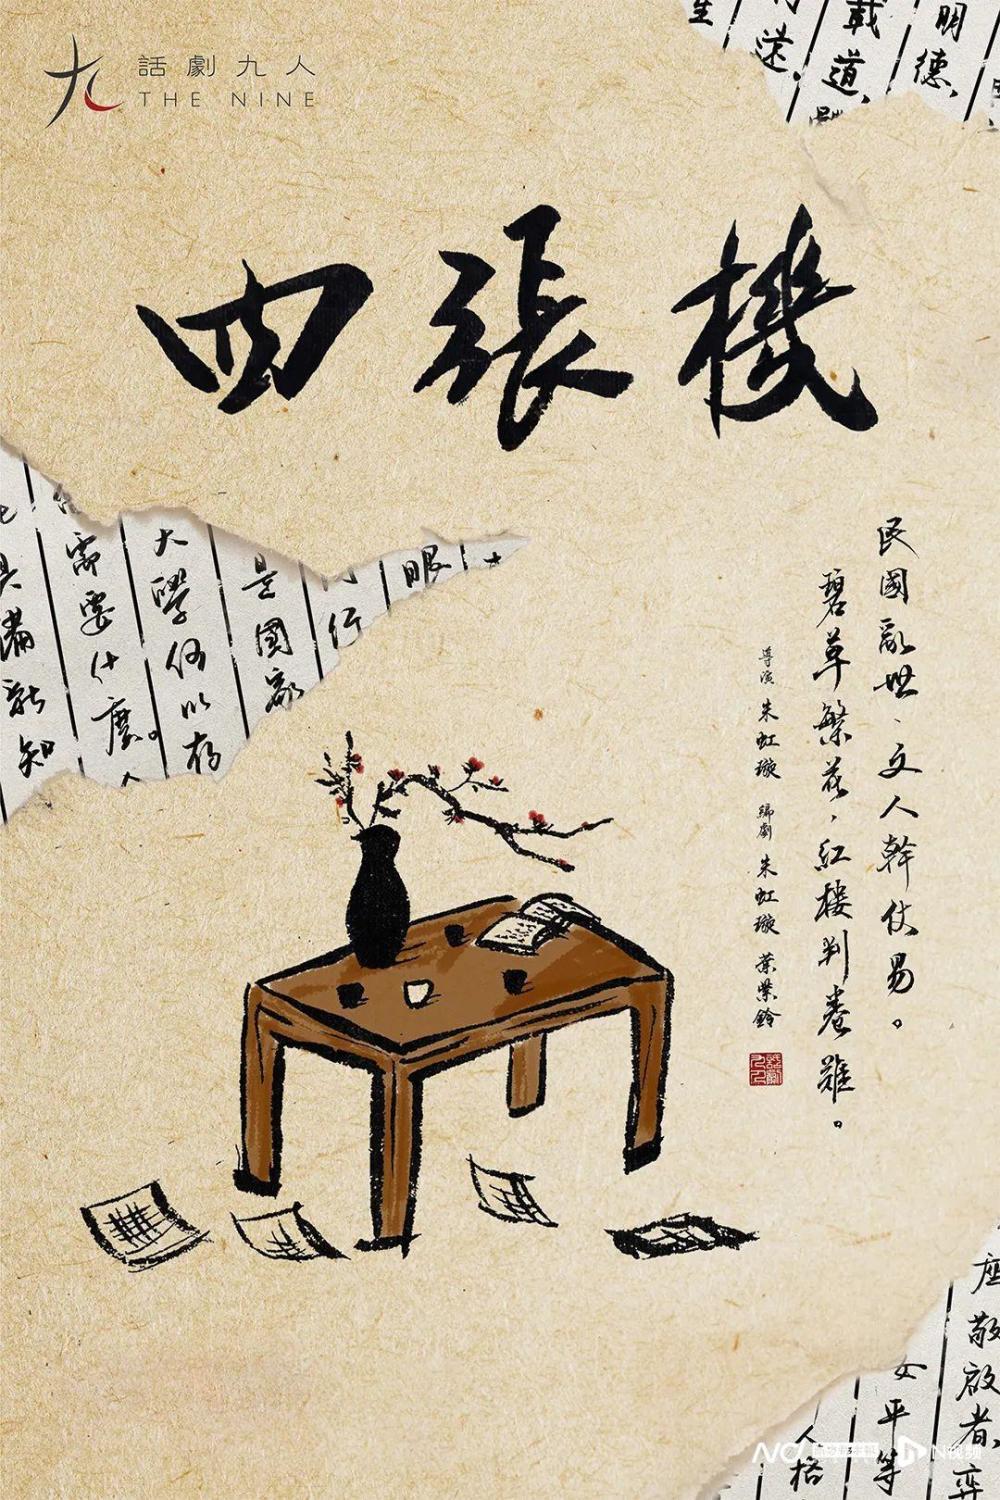 話劇九人
THE NINE
四張機
民國亂世、文人幹仗易。
碧草繁花，紅樓判卷難。
導演 朱虹璇 編劇 朱虹璇 葉紫鈴
明德
載道
遠
眼
行
是國家
大學何以存
需要什麼。
具備新知
座敬啟者、
女平等
人格
N视频